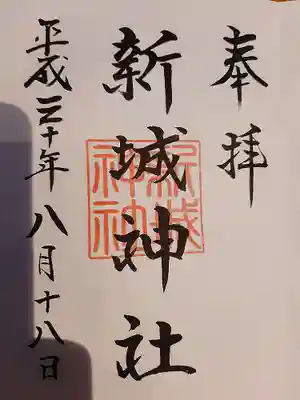 奉拝
新城神社
新城神社
平成三十年八月十八日